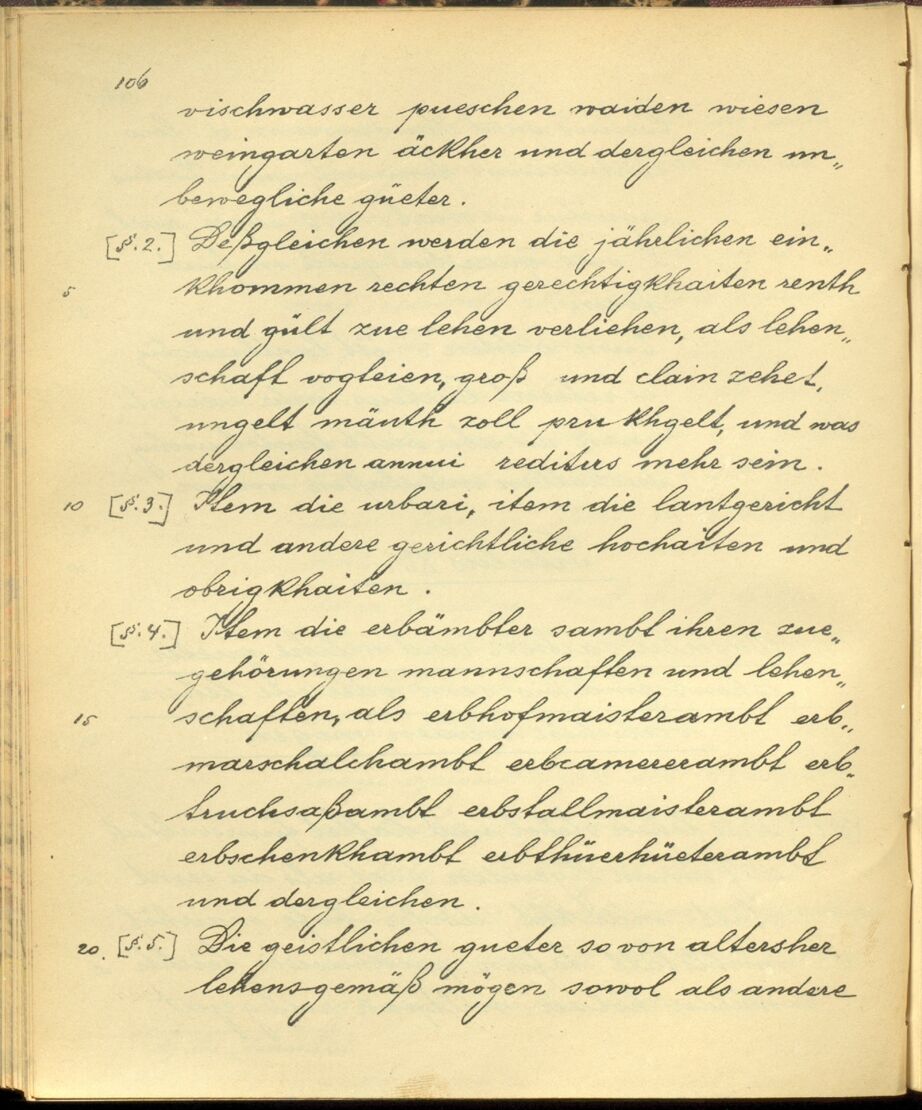 106
vischwasser pueschen waiden wiesen
weingarten äckher und dergleichen un„
bewegliche güeter.
[§. 2.] Deßgleichen werden die jährlichen ein„
5 khommen rechten gerechtigkhaiten renth
und gült zue lehen verliehen, als lehen„
schaft vogteien, groß und clain zehet,
ungelt mäuth zoll prukhgelt, und was
dergleichen annui reditus mehr sein.
10 [§. 3.] Item die urbari, item die lantgericht
und andere gerichtliche hochaiten und
obrigkhaiten.
[§. 4.] Item die erbämbter sambt ihren zue„
gehörungen mannschaften und lehen„
15 schaften, als erbhofmaisterambt erb„
marschalchambt erbcamererambt erb„
truchsaßambt erbstallmaisterambt
erbschenkhambt erbthüerhüeterambt
und dergleichen.
20. [§. 5.] Die geistlichen gueter so von altersher
lehensgemäß mögen sowol als andere